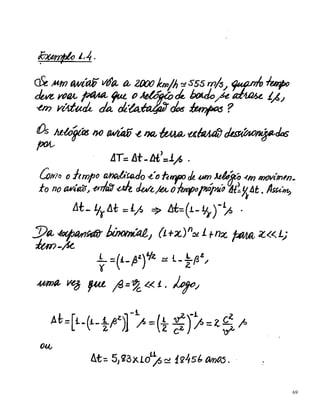 Exemplo 1.4.
Se um avião vôa a 2000 km/h ≃ 555 m/s, quanto tempo
deve voar para que o relógio de bordo se atrase 1s,
em virtude da dilatação dos tempos?
Os relógios no avião e na terra estarão dessincronizados
por
ΔT = Δt - Δt' = 1s .
Como o tempo analisado é o tempo de um relógio em movimen-
to no avião, então este deve ser o tempo próprio Δt' = 1/γ Δt. Assim,
Δt - 1/γ Δt = 1s ⇒ Δt = (1 - 1/γ)^-1 s .
Da expansão binomial, (1+x)^n ≃ 1+nx para x<<1;
tem-se
1/γ = (1-β²)^1/2 ≃ 1 - 1/2 β²,
uma vez que β = v/c << 1. Logo,
Δt = [1-(1-1/2 β²)]^-1 s = (1/2 v²/c²)^-1 s = 2 c²/v² s
ou,
Δt = 5,83x10^11 s ≃ 18456 anos.
69